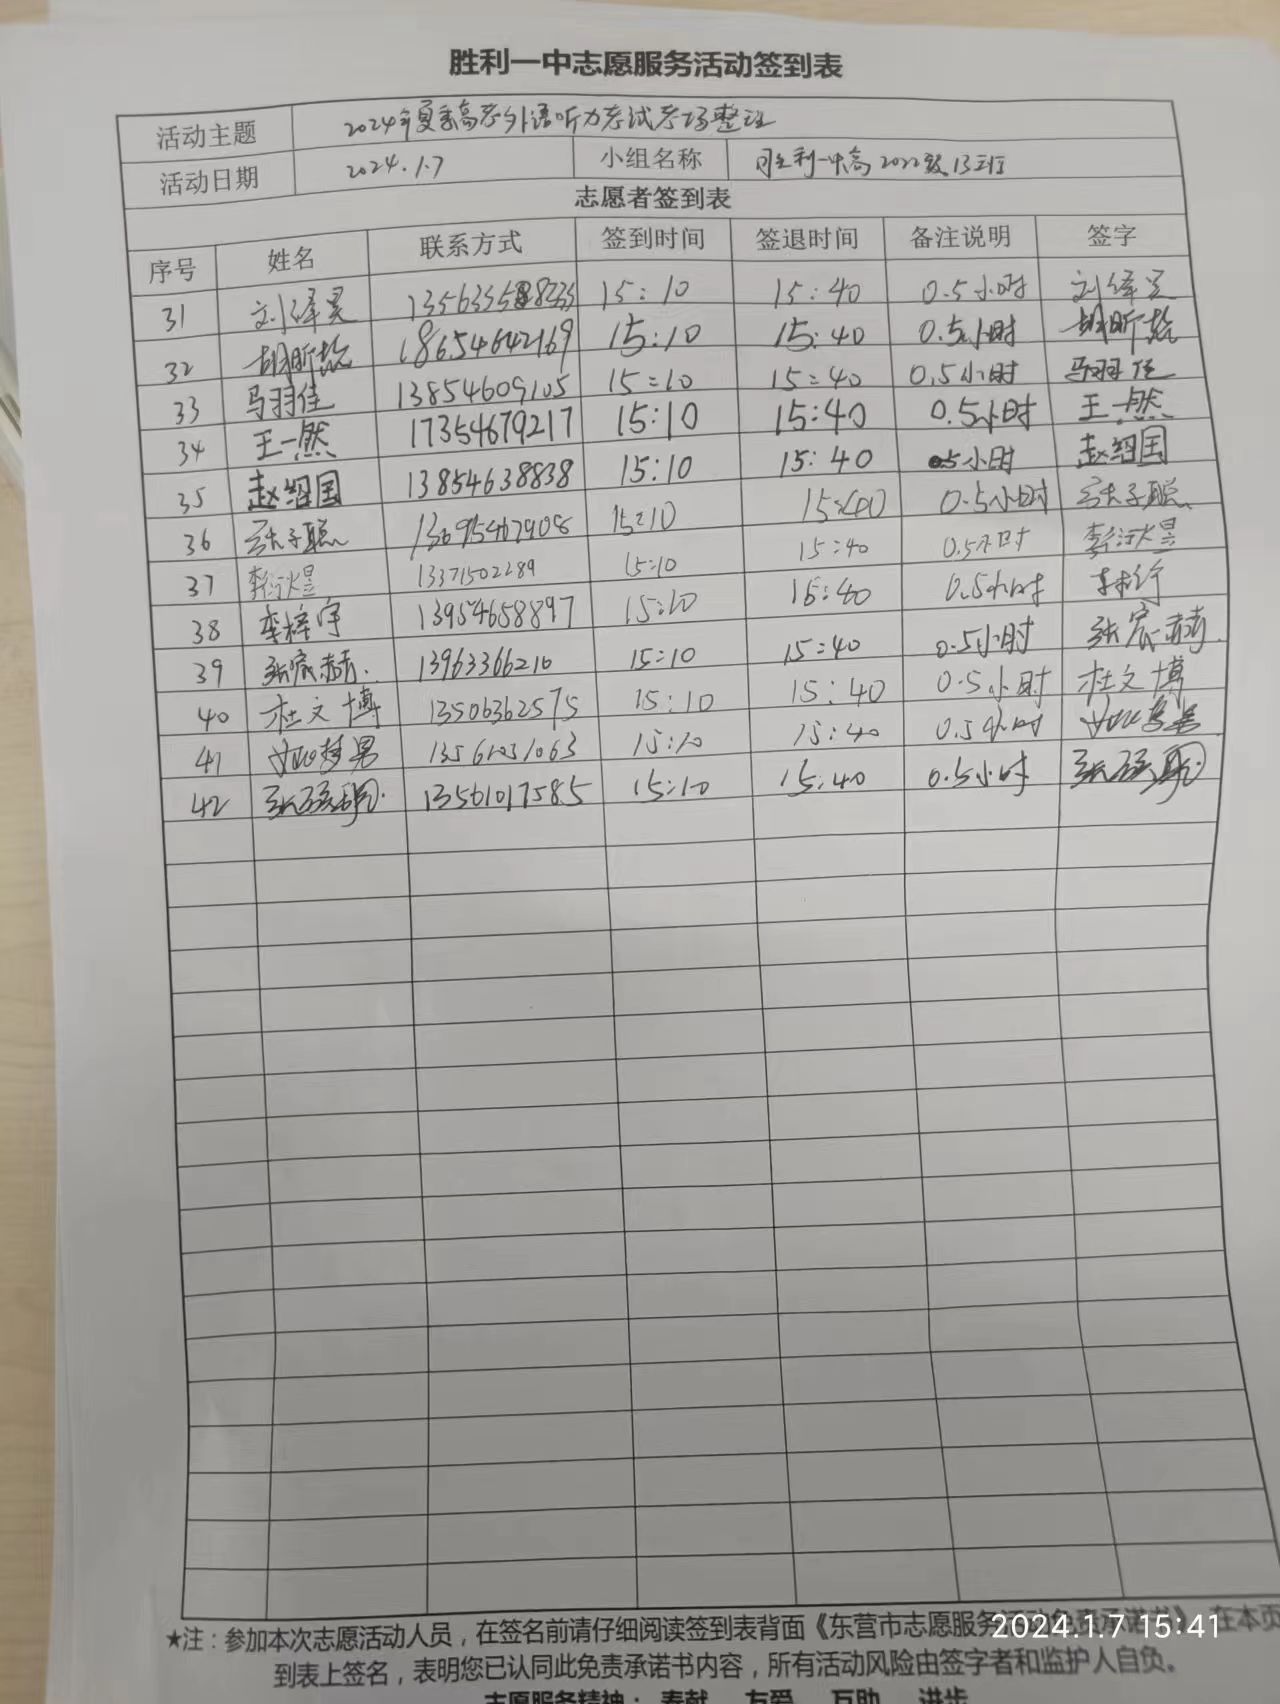 胜利一中志愿服务活动签到表
活动主题 2024年夏季高考外语听力考试考场整理
活动日期 2024.1.7 小组名称 胜利一中高2022级13班
志愿者签到表
序号 姓名 联系方式 签到时间 签退时间 备注说明 签字
31 刘泽昊 15:10 15:40 0.5小时 刘泽昊
32 胡昕懿 18654642169 15:10 15:40 0.5小时 胡昕懿
33 马羽佳 13854609105 15:10 15:40 0.5小时 马羽佳
34 王一然 17354679217 15:10 15:40 0.5小时 王一然
35 赵绍国 13854638838 15:10 15:40 0.5小时 赵绍国
36 张子聪 13695467908 15:10 15:40 0.5小时 张子聪
37 李衍煜 13371502289 15:10 15:40 0.5小时 李衍煜
38 李梓宇 13954658897 15:10 15:40 0.5小时 李梓宇
39 张宸赫 13963366210 15:10 15:40 0.5小时 张宸赫
40 杜文博 13506362575 15:10 15:40 0.5小时 杜文博
41 13561031063 15:10 15:40 0.5小时
42 13561017585 15:10 15:40 0.5小时
★注：参加本次志愿活动人员，在签名前请仔细阅读签到表背面《东营市志愿服务活动免责承诺书》，在本页
到表上签名，表明您已认同此免责承诺书内容，所有活动风险由签字者和监护人自负。
志愿服务精神：奉献 友爱 互助 进步
2024.1.7 15:41